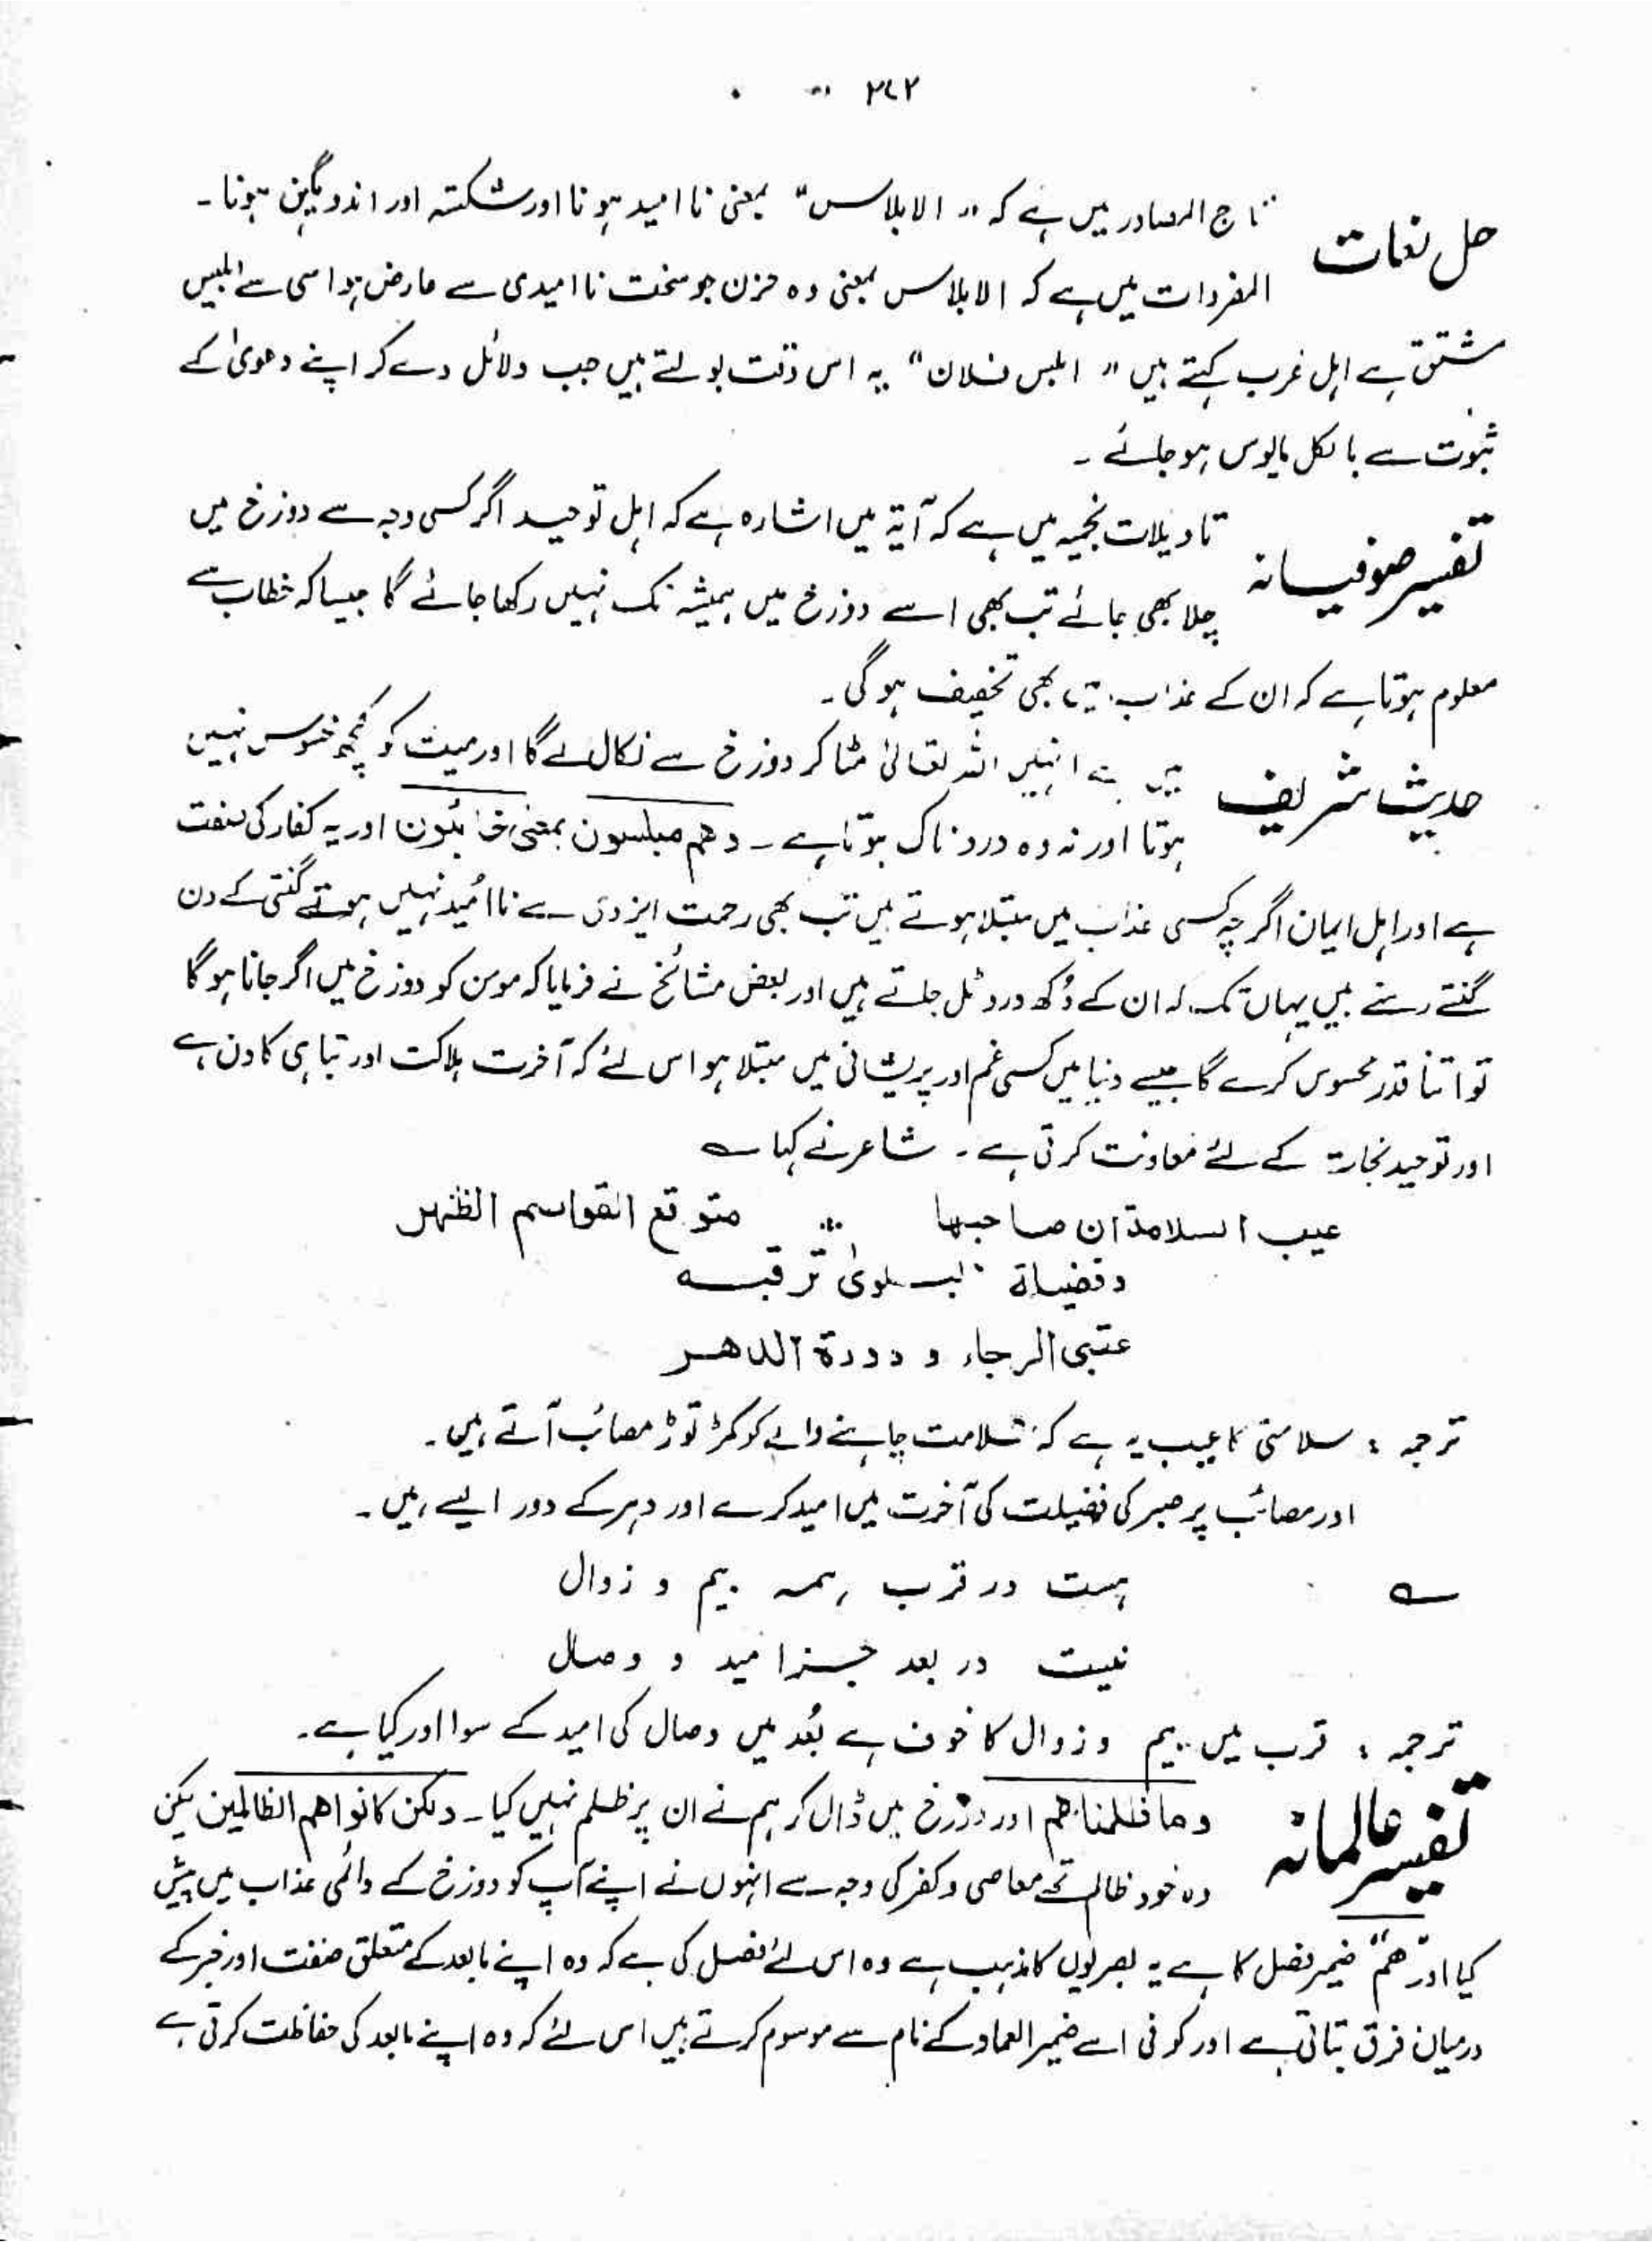 ۲۷۲
حل لغات
تاج المصادر میں ہے کہ " الابلاس" بمعنی نا امید ہونا اور شکستہ اور اندوہگین ہونا۔
المفردات میں ہے کہ الابلاس بمعنی وہ حزن جو سخت ناامیدی سے عارض ہو اسی سے ابلیس
مشتق ہے اہل عرب کہتے ہیں " ابلس فلان" یہ اس وقت بولتے ہیں جب دلائل دے کر اپنے دعویٰ کے
ثبوت سے بالکل مایوس ہو جائے۔
تفسیر صوفیانہ
تاویلات نجمیہ میں ہے کہ آیۃ میں اشارہ ہے کہ اہل توحید اگر کسی وجہ سے دوزخ میں
چلا بھی جائے تب بھی اسے دوزخ میں ہمیشہ تک نہیں رکھا جائے گا جیسا کہ خطاب سے
معلوم ہوتا ہے کہ ان کے عذاب میں بھی تخفیف ہوگی۔
حدیث شریف
میں ہے انہیں اللہ تعالیٰ مٹا کر دوزخ سے نکال لے گا اور میت کو کچھ محسوس نہیں
ہوتا اور نہ وہ دردناک ہوتا ہے۔ وھم مبلسون بمعنی خائبون اور یہ کفار کی صفت
ہے اور اہل ایمان اگرچہ کسی عذاب میں مبتلا ہوتے ہیں تب بھی رحمت ایزدی سے نا اُمید نہیں ہوتے گنتی کے دن
گنتے رہتے ہیں یہاں تک کہ ان کے دُکھ درد ٹل جاتے ہیں اور بعض مشائخ نے فرمایا کہ مومن کو دوزخ میں اگر جانا ہوگا
تو اتنا قدر محسوس کرے گا جیسے دنیا میں کسی غم اور پریشانی میں مبتلا ہو اس لئے کہ آخرت ہلاکت اور تباہی کا دن ہے
اور توحید نجات کے لئے معاونت کرتی ہے۔ شاعر نے کہا ؎
عیب السلامۃ ان صاحبھا ؞ متوقع القواسم الظھر
وفضیلۃ البلویٰ ترقبہ
عقبی الرجاء و دورۃ الدھر
ترجمہ : سلامتی کا عیب یہ ہے کہ سلامت چاہنے والے کو کمر توڑ مصائب آتے ہیں۔
اور مصائب پر صبر کی فضیلت کی آخرت میں امید کرے اور دہر کے دور ایسے ہیں۔
؎ ہست در قرب ہمہ بیم و زوال
نیست در بعد جز امید و وصال
ترجمہ : قرب میں بیم و زوال کا خوف ہے بُعد میں وصال کی امید کے سوا اور کیا ہے۔
تفسیر عالمانہ
وما ظلمناھم اور دوزخ میں ڈال کر ہم نے ان پر ظلم نہیں کیا۔ ولکن کانوا ھم الظالمین لیکن
وہ خود ظالم تھے معاصی و کفر کی وجہ سے انہوں نے اپنے آپ کو دوزخ کے دائمی عذاب میں پیش
کیا اور "ھم" ضمیر فصل کا ہے یہ بصریوں کا مذہب ہے وہ اس لئے فصل کی ہے کہ وہ اپنے مابعد کے متعلق صفت اور خبر کے
درمیان فرق بتاتی ہے اور کوفی اسے ضمیر العماد کے نام سے موسوم کرتے ہیں اس لئے کہ وہ اپنے مابعد کی حفاظت کرتی ہے